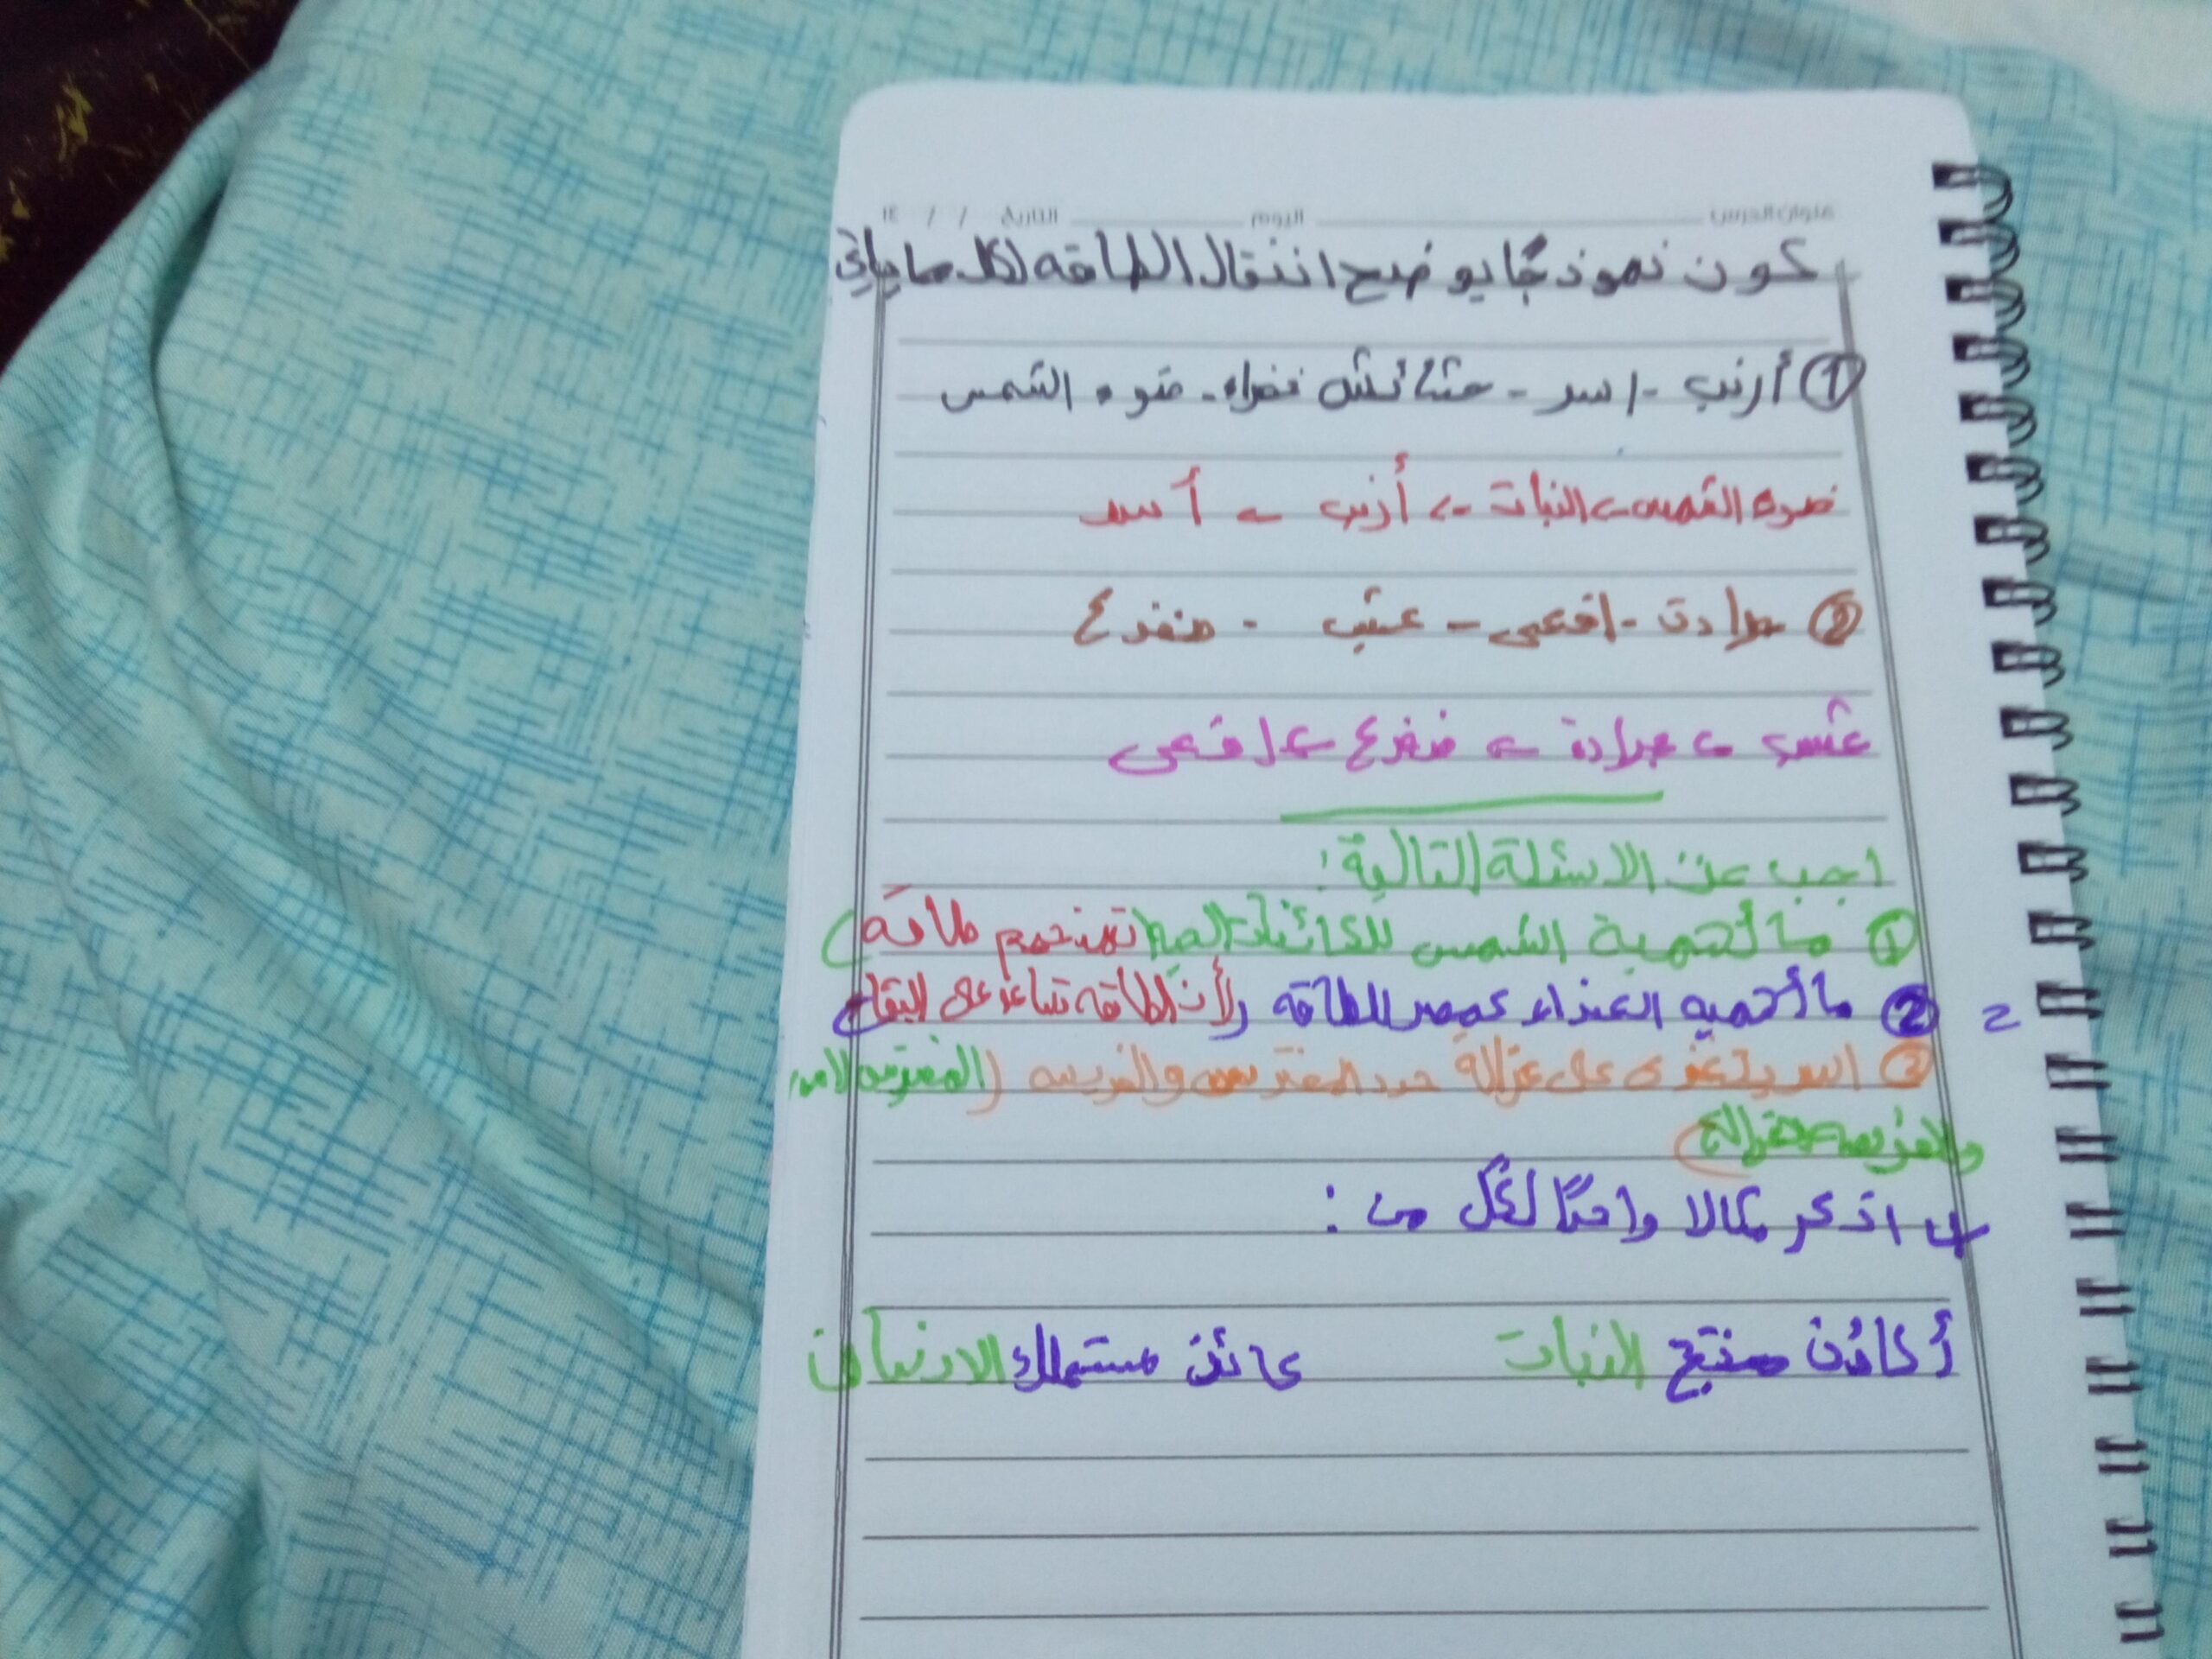 عنوان الدرس اليوم التاريخ / / ١٤
كون نموذجًا يوضح انتقال الطاقه لكل ما يأتي
① أرنب - اسد - حشائش خضراء - ضوء الشمس
ضوء الشمس ← النبات ← أرنب ← أسد
② جرادة - افعى - عشب - ضفدع
عشب ← جرادة ← ضفدع ← افعى
اجب عن الاسئلة التالية:
① ما أهمية الشمس للكائنات الحية (تمنحهم طاقة)
② ما أهميه الغذاء كمصدر للطاقه (لأن الطاقه تساعد على البقاء
③ اسد يتغذى على غزالة حدد المفترس والفريسه (المفترس الاسد
والفريسه غزالة)
4 اذكر مثالا واحدًا لكل من:
أ كائن منتج النبات كائن مستهلك الانسان